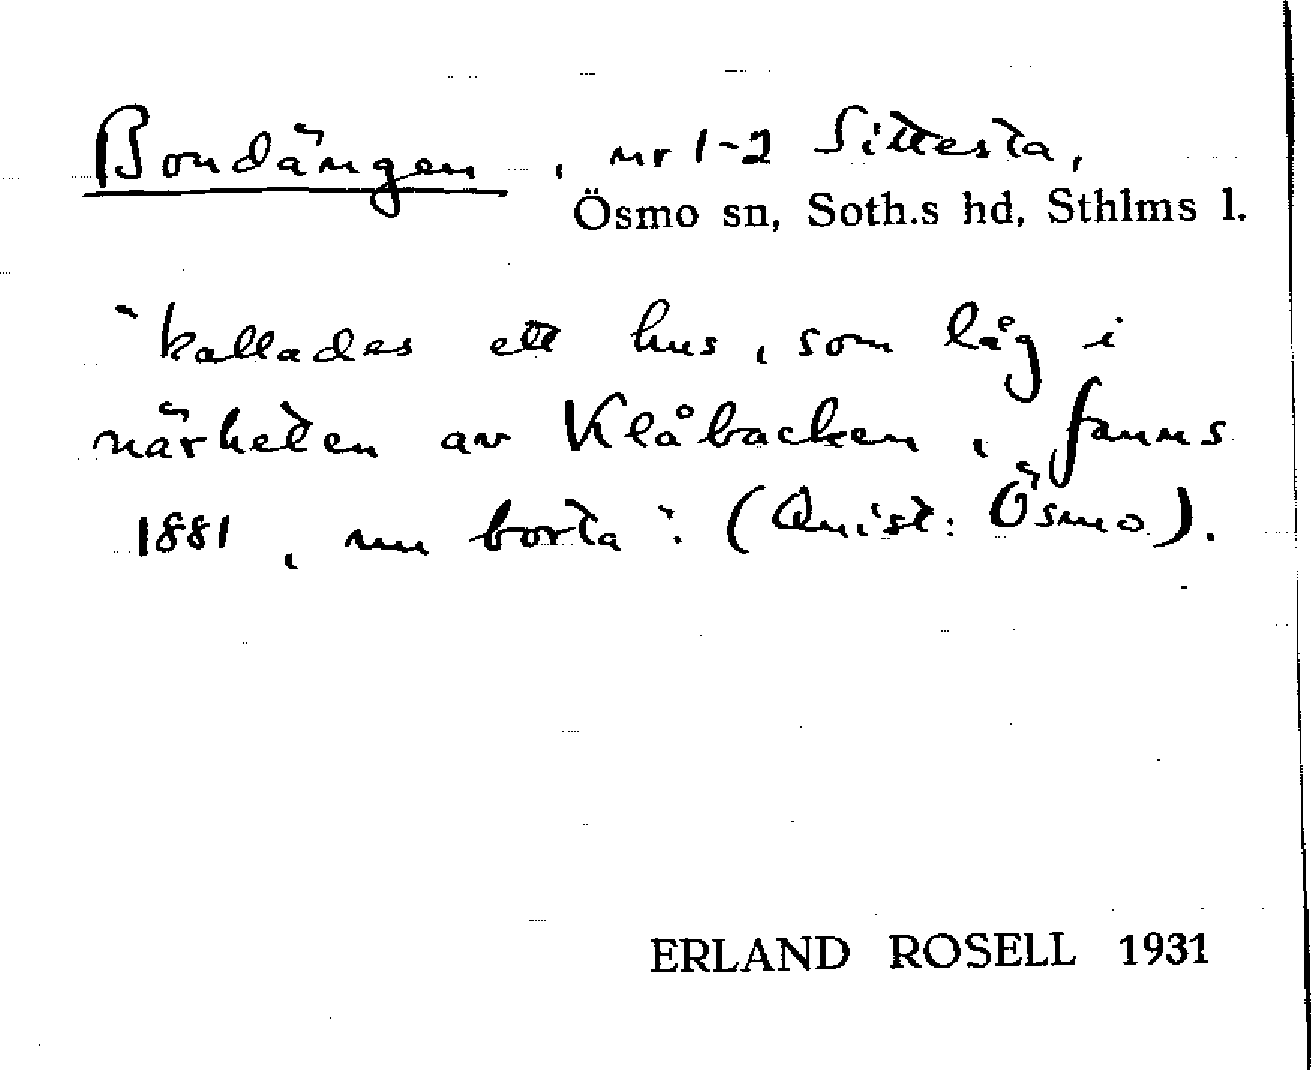 Bondängen, nr 1-2 Sittesta,
Ösmo sn, Soth.s hd, Sthlms l.
"kallades ett hus, som låg i
närheten av Klåbacken, fanns
1881, nu borta": (Quist: Ösmo).
ERLAND ROSELL 1931